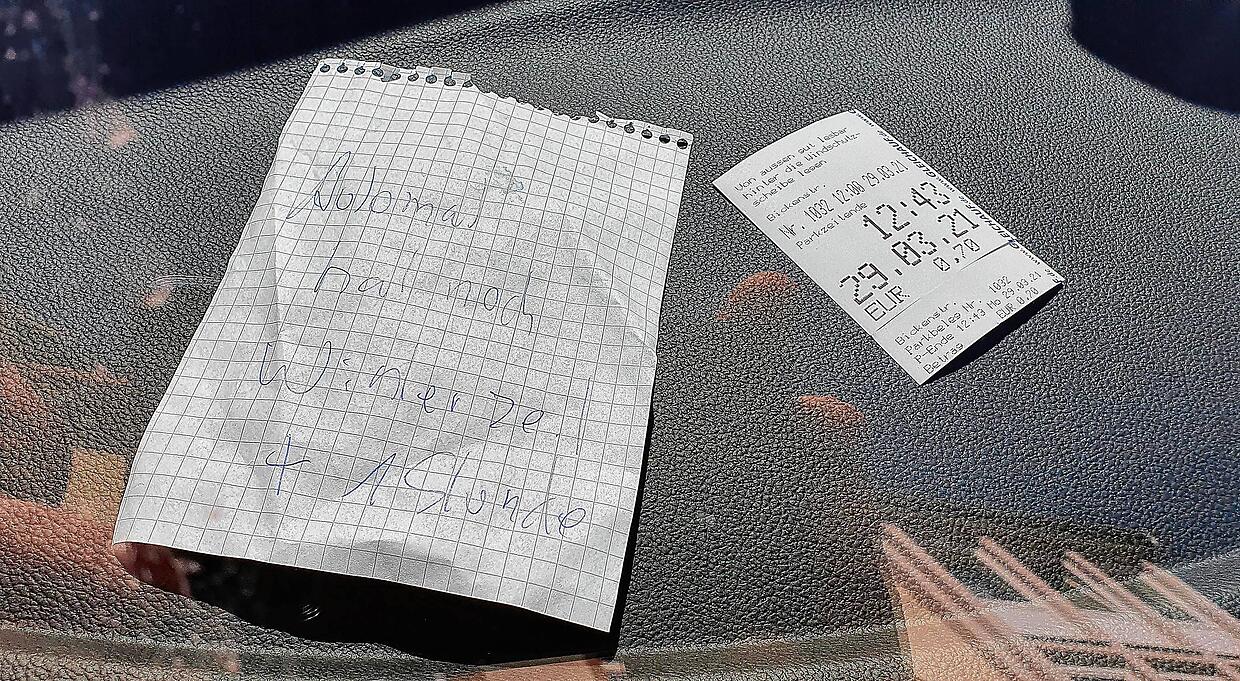 Automat
hat noch
Winterzeit
+ 1 Stunde
Von aussen gut lesbar
hinter die Windschutz-
scheibe lesen
Bickenstr.
Nr. 1032 12:00 29.03.21
Parkzeitende
12:43
29.03.21
EUR 0,70
Bickenstr.
Parkbeleg Nr. 1032
P-Ende 12:43 Mo 29.03.21
Betrag EUR 0,70